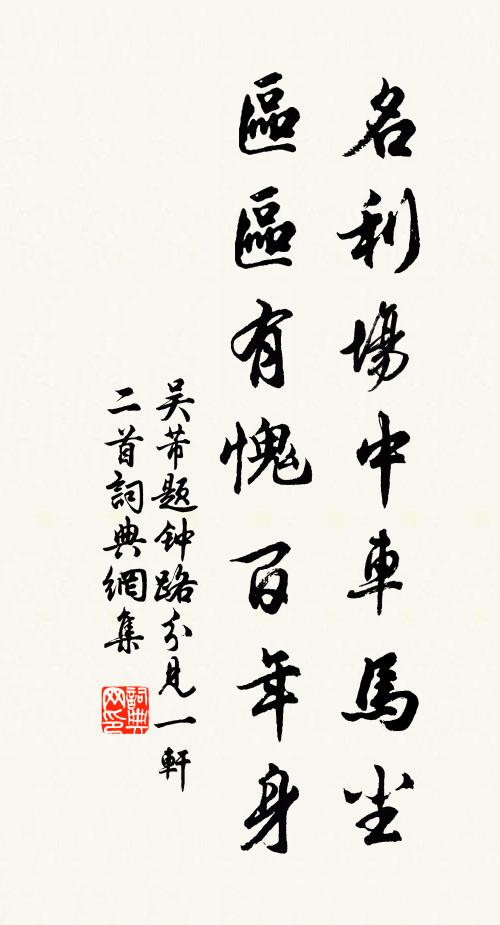 名利場中車馬尘
區區有愧百年身
吴芾题钟路分見一軒
二首詞典網集
詞典
网印